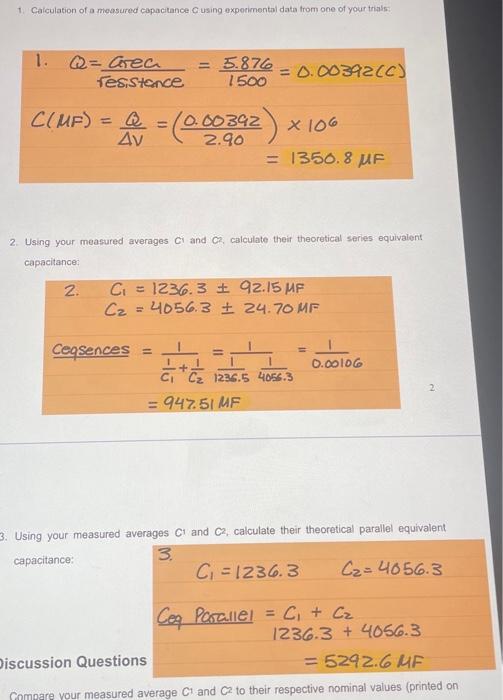 1. Calculation of a measured capacitance C using experimental data from one of your trials:
1. Q = area / resistance = 5.876 / 1500 = 0.00392 (C)
C(MF) = Q / ΔV = (0.00392 / 2.90) × 10⁶
= 1350.8 μF
2. Using your measured averages C¹ and C², calculate their theoretical series equivalent
capacitance:
2. C₁ = 1236.3 ± 92.15 MF
C₂ = 4056.3 ± 24.70 MF
Ceqsences = 1 / (1/C₁ + 1/C₂) = 1 / (1/1236.5 1/4056.3) = 1 / 0.00106
= 947.51 MF
2
3. Using your measured averages C¹ and C², calculate their theoretical parallel equivalent
capacitance:
3.
C₁ = 1236.3 C₂ = 4056.3
Ceq Parallel = C₁ + C₂
1236.3 + 4056.3
= 5292.6 MF
Discussion Questions
Compare your measured average C¹ and C² to their respective nominal values (printed on